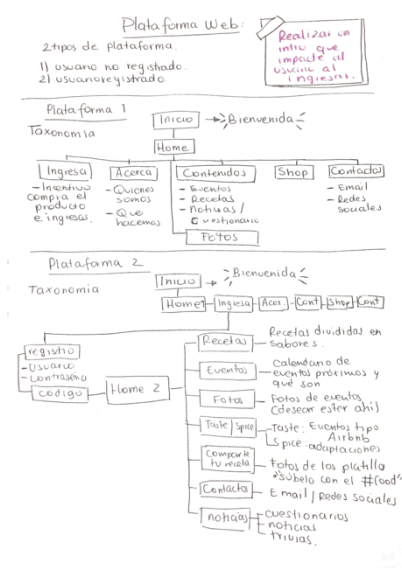 Plataforma Web:
2 tipos de plataforma.
1) usuario no registrado.
2) usuario registrado.
Realizar un
intro que
impacte al
usuario al
ingresar.
Plataforma 1
Taxonomia
Inicio → Bienvenida
Home
Ingresa
- Incentivo
compra el
producto
e ingresas.
Acerca
- Quienes
somos
- Que
hacemos
Contenidos
- Eventos
- Recetas
- Noticias/
Cuestionario
Fotos
Shop
Contactos
- Email
- Redes
sociales
Plataforma 2
Taxonomia
Inicio → Bienvenida
Home 1 Ingresa Acer. Cont Shop Cont
registro
- Usuario
- Contraseña
codigo
Home 2
Recetas
Recetas divididas en
sabores.
Eventos
Calendario de
eventos próximos y
que son
Fotos
Fotos de eventos
(desear estar ahí)
Taste/Spice
Taste: Eventos tipo
Airbnb
Spice: adaptaciones
Comparte
tu receta
Fotos de los platillo
"súbelo con el #food"
Contactos
Email/Redes sociales
noticias
cuestionarios
noticias
trivias.